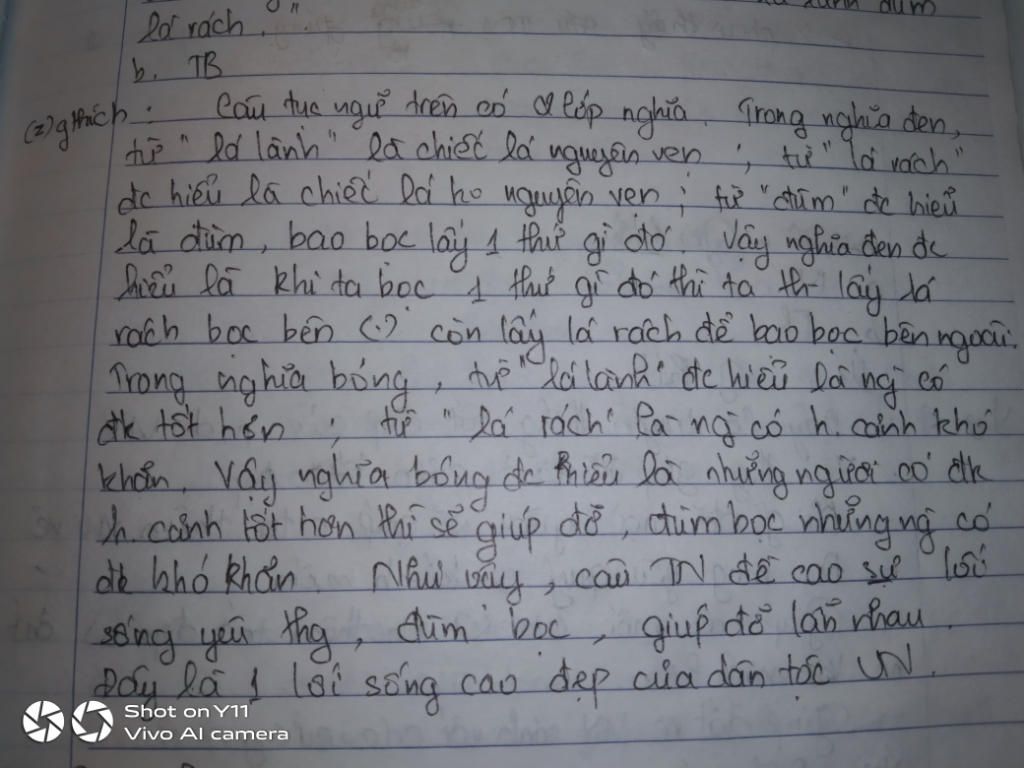 lá rách."
b. TB
(2) gthích: Câu tục ngữ trên có 2 lớp nghĩa. Trong nghĩa đen,
từ "lá lành" là chiếc lá nguyên vẹn; từ "lá rách"
đc hiểu là chiếc lá ko nguyên vẹn; từ "đùm" đc hiểu
là đùm, bao bọc lấy 1 thứ gì đó. Vậy nghĩa đen đc
hiểu là khi ta bọc 1 thứ gì đó thì ta th lấy lá
rách bọc bên (.) còn lấy lá rách để bao bọc bên ngoài.
Trong nghĩa bóng, từ "lá lành" đc hiểu là ng có
đk tốt hơn; từ "lá rách" là ng có h.cảnh khó
khăn. Vậy nghĩa bóng đc hiểu là những người có đk
h.cảnh tốt hơn thì sẽ giúp đỡ, đùm bọc những ng có
đk khó khăn. Như vậy, câu TN đề cao sự lối
sống yêu thg, đùm bọc, giúp đỡ lẫn nhau.
Đây là 1 lối sống cao đẹp của dân tộc VN.
Shot on Y11
Vivo AI camera